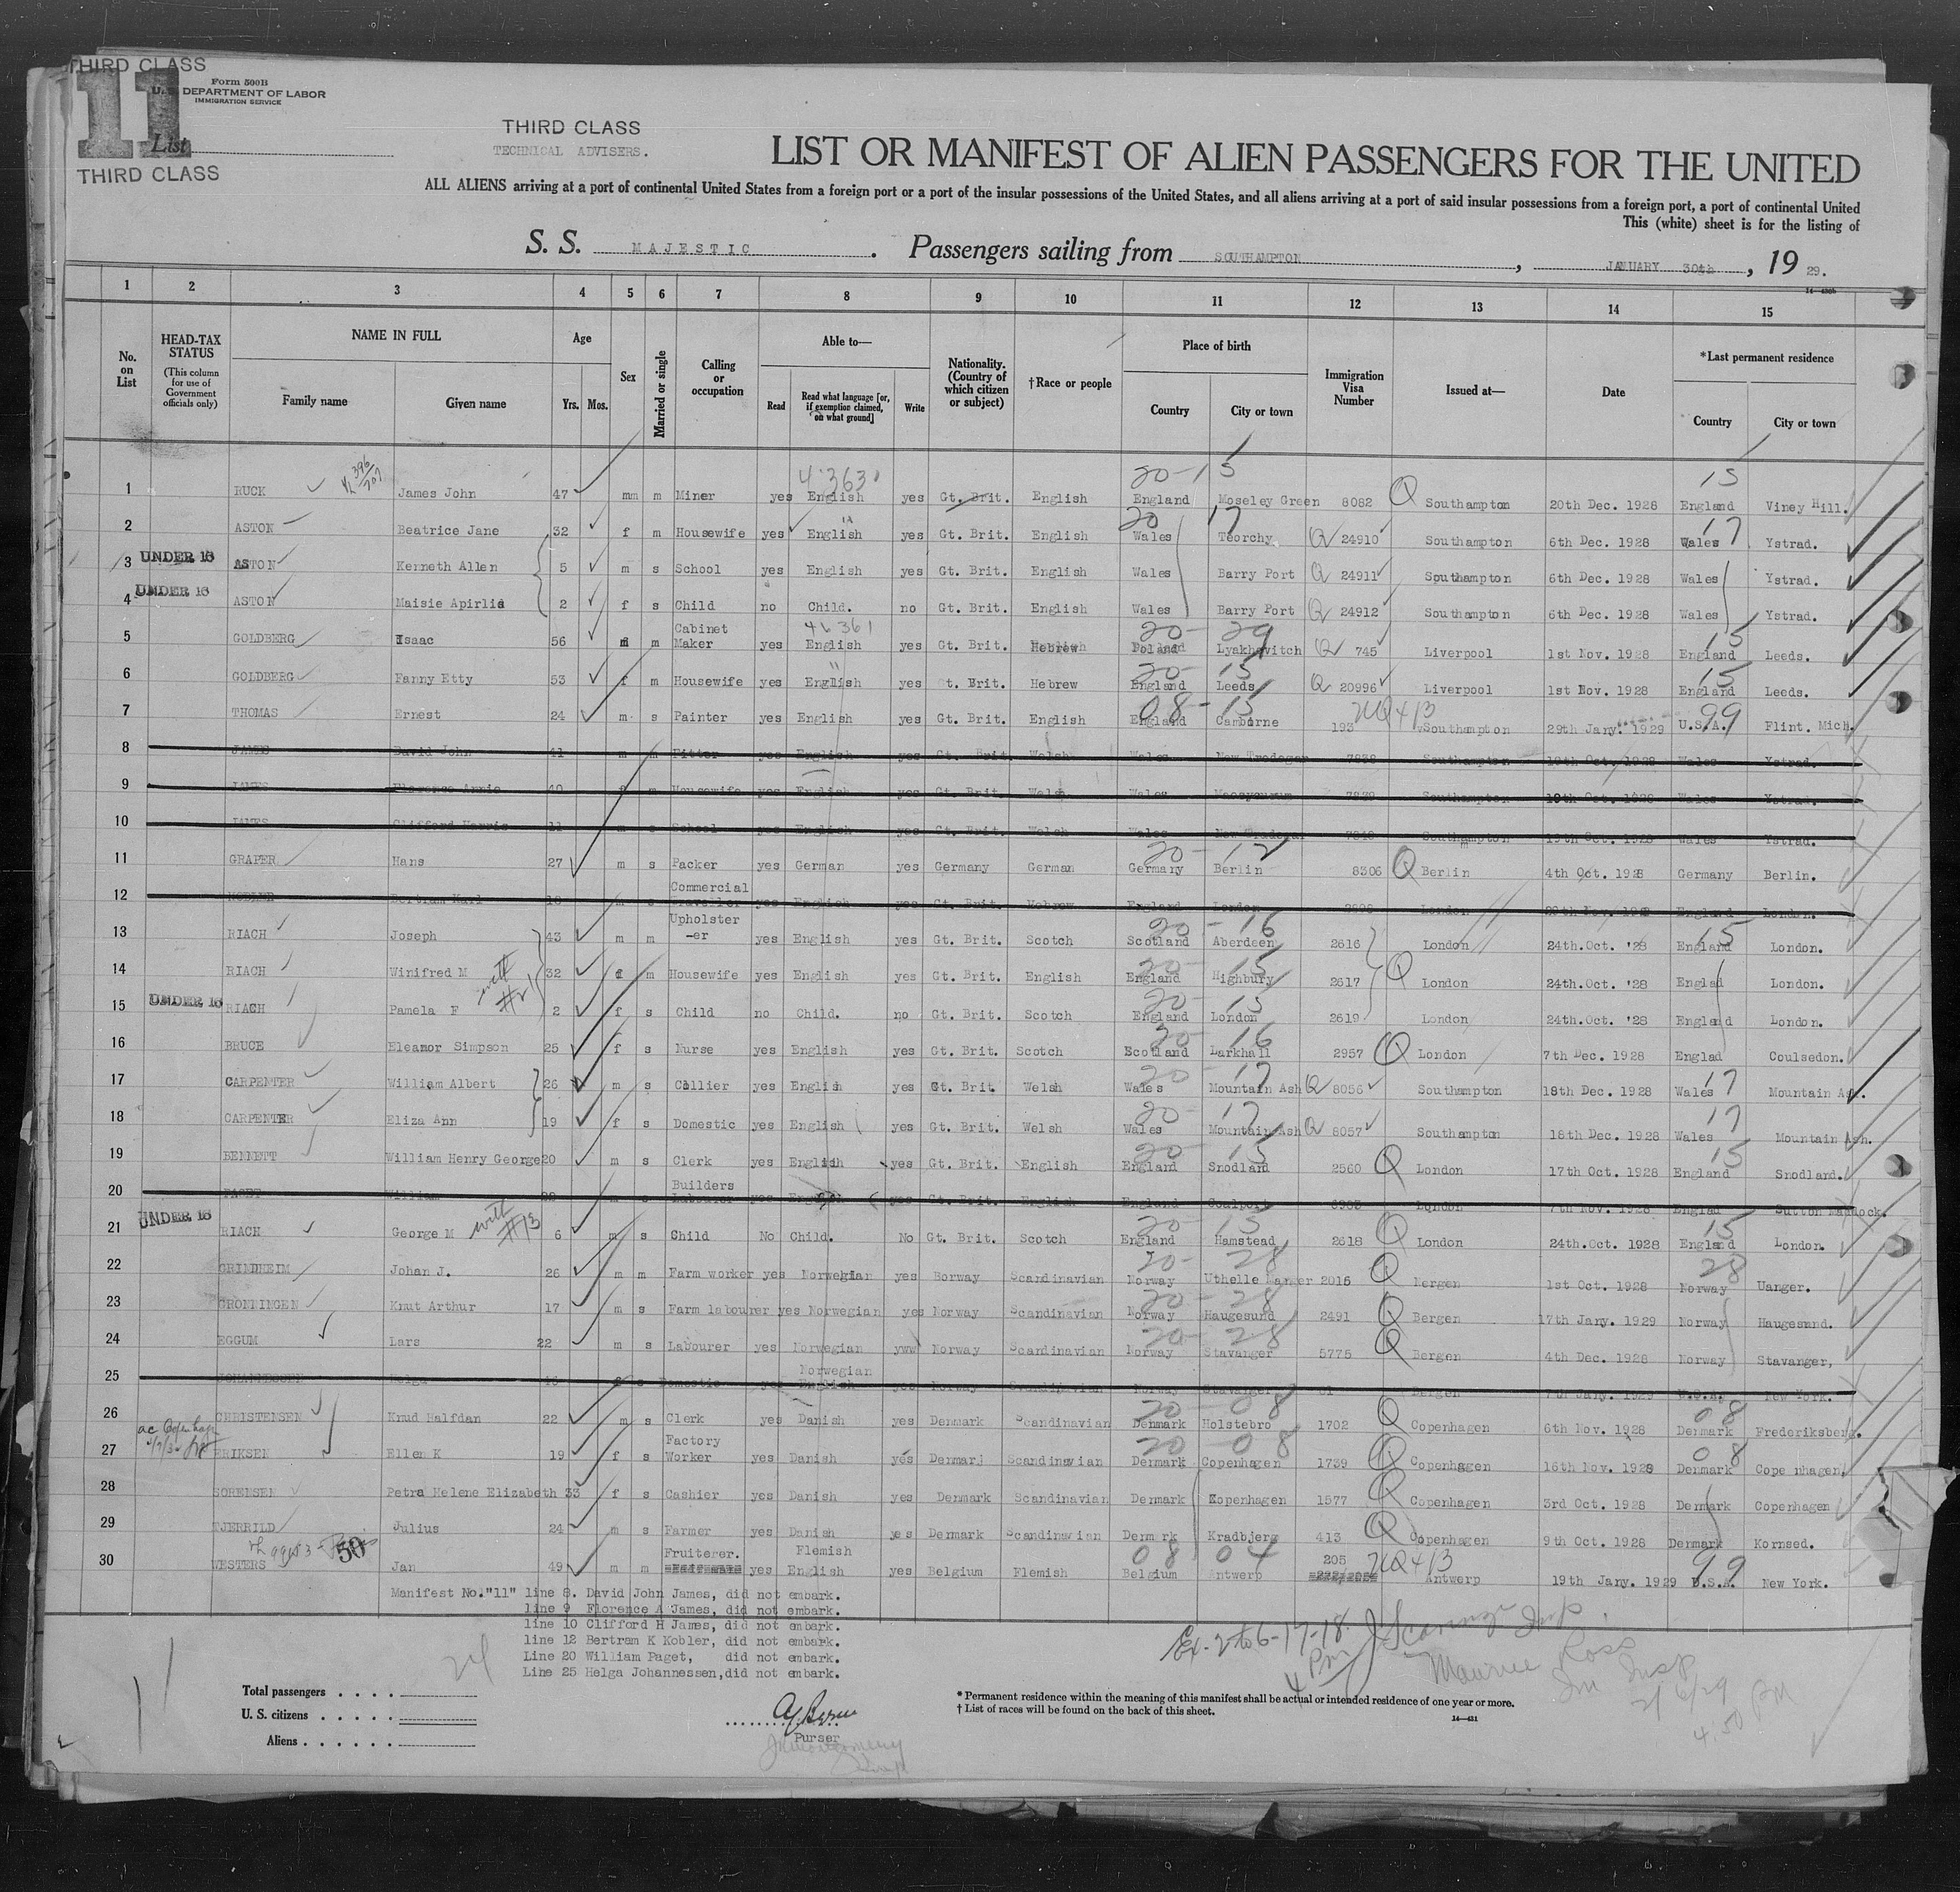 THIRD CLASS
11
Form 500B
U. S. DEPARTMENT OF LABOR
IMMIGRATION SERVICE
List
THIRD CLASS
THIRD CLASS
TECHNICAL ADVISERS.
LIST OR MANIFEST OF ALIEN PASSENGERS FOR THE UNITED
ALL ALIENS arriving at a port of continental United States from a foreign port or a port of the insular possessions of the United States, and all aliens arriving at a port of said insular possessions from a foreign port, a port of continental United
This (white) sheet is for the listing of
S. S. MAJESTIC. Passengers sailing from SOUTHAMPTON, JANUARY 30th, 19 29.
1 2 3 4 5 6 7 8 9 10 11 12 13 14 15
No. on List
HEAD-TAX STATUS
(This column for use of Government officials only)
NAME IN FULL
Family name
Given name
Age
Yrs. Mos.
Sex
Married or single
Calling or occupation
Able to—
Read
Read what language [or, if exemption claimed, on what ground]
Write
Nationality. (Country of which citizen or subject)
†Race or people
Place of birth
Country
City or town
Immigration Visa Number
Issued at—
Date
*Last permanent residence
Country
City or town
1 RUCK James John 47 mm m Miner yes English yes Gt. Brit. English England Moseley Green 8082 Q Southampton 20th Dec. 1928 England Viney Hill.
2 ASTON Beatrice Jane 32 f m Housewife yes English yes Gt. Brit. English Wales Teorchy Q 24910 Southampton 6th Dec. 1928 Wales Ystrad.
3 UNDER 16 ASTON Kenneth Allen 5 m s School yes English yes Gt. Brit. English Wales Barry Port Q 24911 Southampton 6th Dec. 1928 Wales Ystrad.
4 UNDER 16 ASTON Maisie Apirlia 2 f s Child no Child. no Gt. Brit. English Wales Barry Port Q 24912 Southampton 6th Dec. 1928 Wales Ystrad.
5 GOLDBERG Isaac 56 m m Cabinet Maker yes English yes Gt. Brit. Hebrew Poland Lyakhovitch Q 745 Liverpool 1st Nov. 1928 England Leeds.
6 GOLDBERG Fanny Etty 53 f m Housewife yes English yes Gt. Brit. Hebrew England Leeds Q 20996 Liverpool 1st Nov. 1928 England Leeds.
7 THOMAS Ernest 24 m s Painter yes English yes Gt. Brit. English England Camborne 193 Southampton 29th Jany. 1929 U.S.A. Flint. Mich.
8 JAMES David John 41 m m Fitter yes English yes Gt. Brit. Welsh Wales New Tredegar Southampton 19th Oct. 1928 Wales Ystrad.
9 JAMES Florence Annie 40 f m Housewife yes English yes Gt. Brit. Welsh Wales Southampton 19th Oct. 1928 Wales Ystrad.
10 JAMES Clifford Harris 11 m s School yes English yes Gt. Brit. Welsh Wales New Tredegar Southampton 19th Oct. 1928 Wales Ystrad.
11 GRAPER Hans 27 m s Packer yes German yes Germany German Germany Berlin 8306 Q Berlin 4th Oct. 1928 Germany Berlin.
12 KOBLER Bertram Karl 18 m s Commercial Traveller yes English yes Gt. Brit. Hebrew England London London Nov. England London.
13 RIACH Joseph 43 m m Upholster-er yes English yes Gt. Brit. Scotch Scotland Aberdeen 2616 London 24th.Oct. '28 England London.
14 RIACH Winifred M 32 f m Housewife yes English yes Gt. Brit. English England Highbury 2617 Q London 24th.Oct. '28 Englad London.
with #21
15 UNDER 16 RIACH Pamela F 2 f s Child no Child. no Gt. Brit. Scotch England London 2619 London 24th.Oct. '28 England London.
16 BRUCE Eleanor Simpson 25 f s Nurse yes English yes Gt. Brit. Scotch Scotland Larkhall 2957 Q London 7th Dec. 1928 Englad Coulsedon.
17 CARPENTER William Albert 26 m s Collier yes English yes Gt. Brit Welsh Wales Mountain Ash Q 8056 Southampton 18th Dec. 1928 Wales Mountain Ash.
18 CARPENTER Eliza Ann 19 f s Domestic yes English yes Gt. Brit. Welsh Wales Mountain Ash Q 8057 Southampton 18th Dec. 1928 Wales Mountain Ash.
19 BENNETT William Henry George 20 m s Clerk yes English yes Gt. Brit. English England Snodland 2560 Q London 17th Oct. 1928 England Snodland.
20 PAGET William m s Builders Labourer yes English yes Gt. Brit. English England Coalport London 7th Nov. 1928 Englad Sutton Maddock.
21 UNDER 16 RIACH George M with #13 6 m s Child No Child. No Gt. Brit. Scotch England Hamstead 2618 Q London 24th.Oct. 1928 England London.
22 GRINDHEIM Johan J. 26 m m Farm worker yes Norwegian yes Norway Scandinavian Norway Uthelle 2015 Q Bergen 1st Oct. 1928 Norway Uanger.
23 GRONNINGEN Knut Arthur 17 m s Farm labourer yes Norwegian yes Norway Scandinavian Norway Haugesund 2491 Q Bergen 17th Jany. 1929 Norway Haugesand.
24 EGGUM Lars 22 m s Labourer yes Norwegian yww Norway Scandinavian Norway Stavanger 5775 Q Bergen 4th Dec. 1928 Norway Stavanger,
25 JOHANNESSEN Helga f s Domestic yes Norwegian English yes Norway Scandinavian Norway Stavanger Bergen 7th Jany. 1929 U.S.A. New York.
26 CHRISTENSEN Knud Halfdan 22 m s Clerk yes Danish yes Denmark Scandinavian Denmark Holstebro 1702 Q Copenhagen 6th Nov. 1928 Denmark Frederiksberg.
27 ERIKSEN Ellen K 19 f s Factory Worker yes Danish yes Denmark Scandinavian Denmark Copenhagen 1739 Q Copenhagen 16th Nov. 1928 Denmark Copenhagen.
28 SORENSEN Petra Helene Elizabeth 33 f s Cashier yes Danish yes Denmark Scandinavian Denmark Kopenhagen 1577 Q Copenhagen 3rd Oct. 1928 Denmark Copenhagen
29 TJERRILD Julius 24 m s Farmer yes Danish yes Denmark Scandinavian Denmark Kradbjerg 413 Q Copenhagen 9th Oct. 1928 Denmark Kornsed.
30 WESTERS Jan 49 m m Fruiterer. yes Flemish English yes Belgium Flemish Belgium Antwerp 205 Antwerp 19th Jany. 1929 U.S.A. New York.
Manifest No."11" line 8. David John James, did not embark.
line 9 Florence A James, did not embark.
line 10 Clifford H James, did not embark.
line 12 Bertram K Kobler, did not embark.
Line 20 William Paget, did not embark.
Line 25 Helga Johannessen, did not embark.
Ex. 2 to 6-17-18.
Maurice Ross
Im Insp
2/6/29
4.50 PM
24
Total passengers
U. S. citizens
Aliens
Purser
* Permanent residence within the meaning of this manifest shall be actual or intended residence of one year or more.
† List of races will be found on the back of this sheet.
14—431